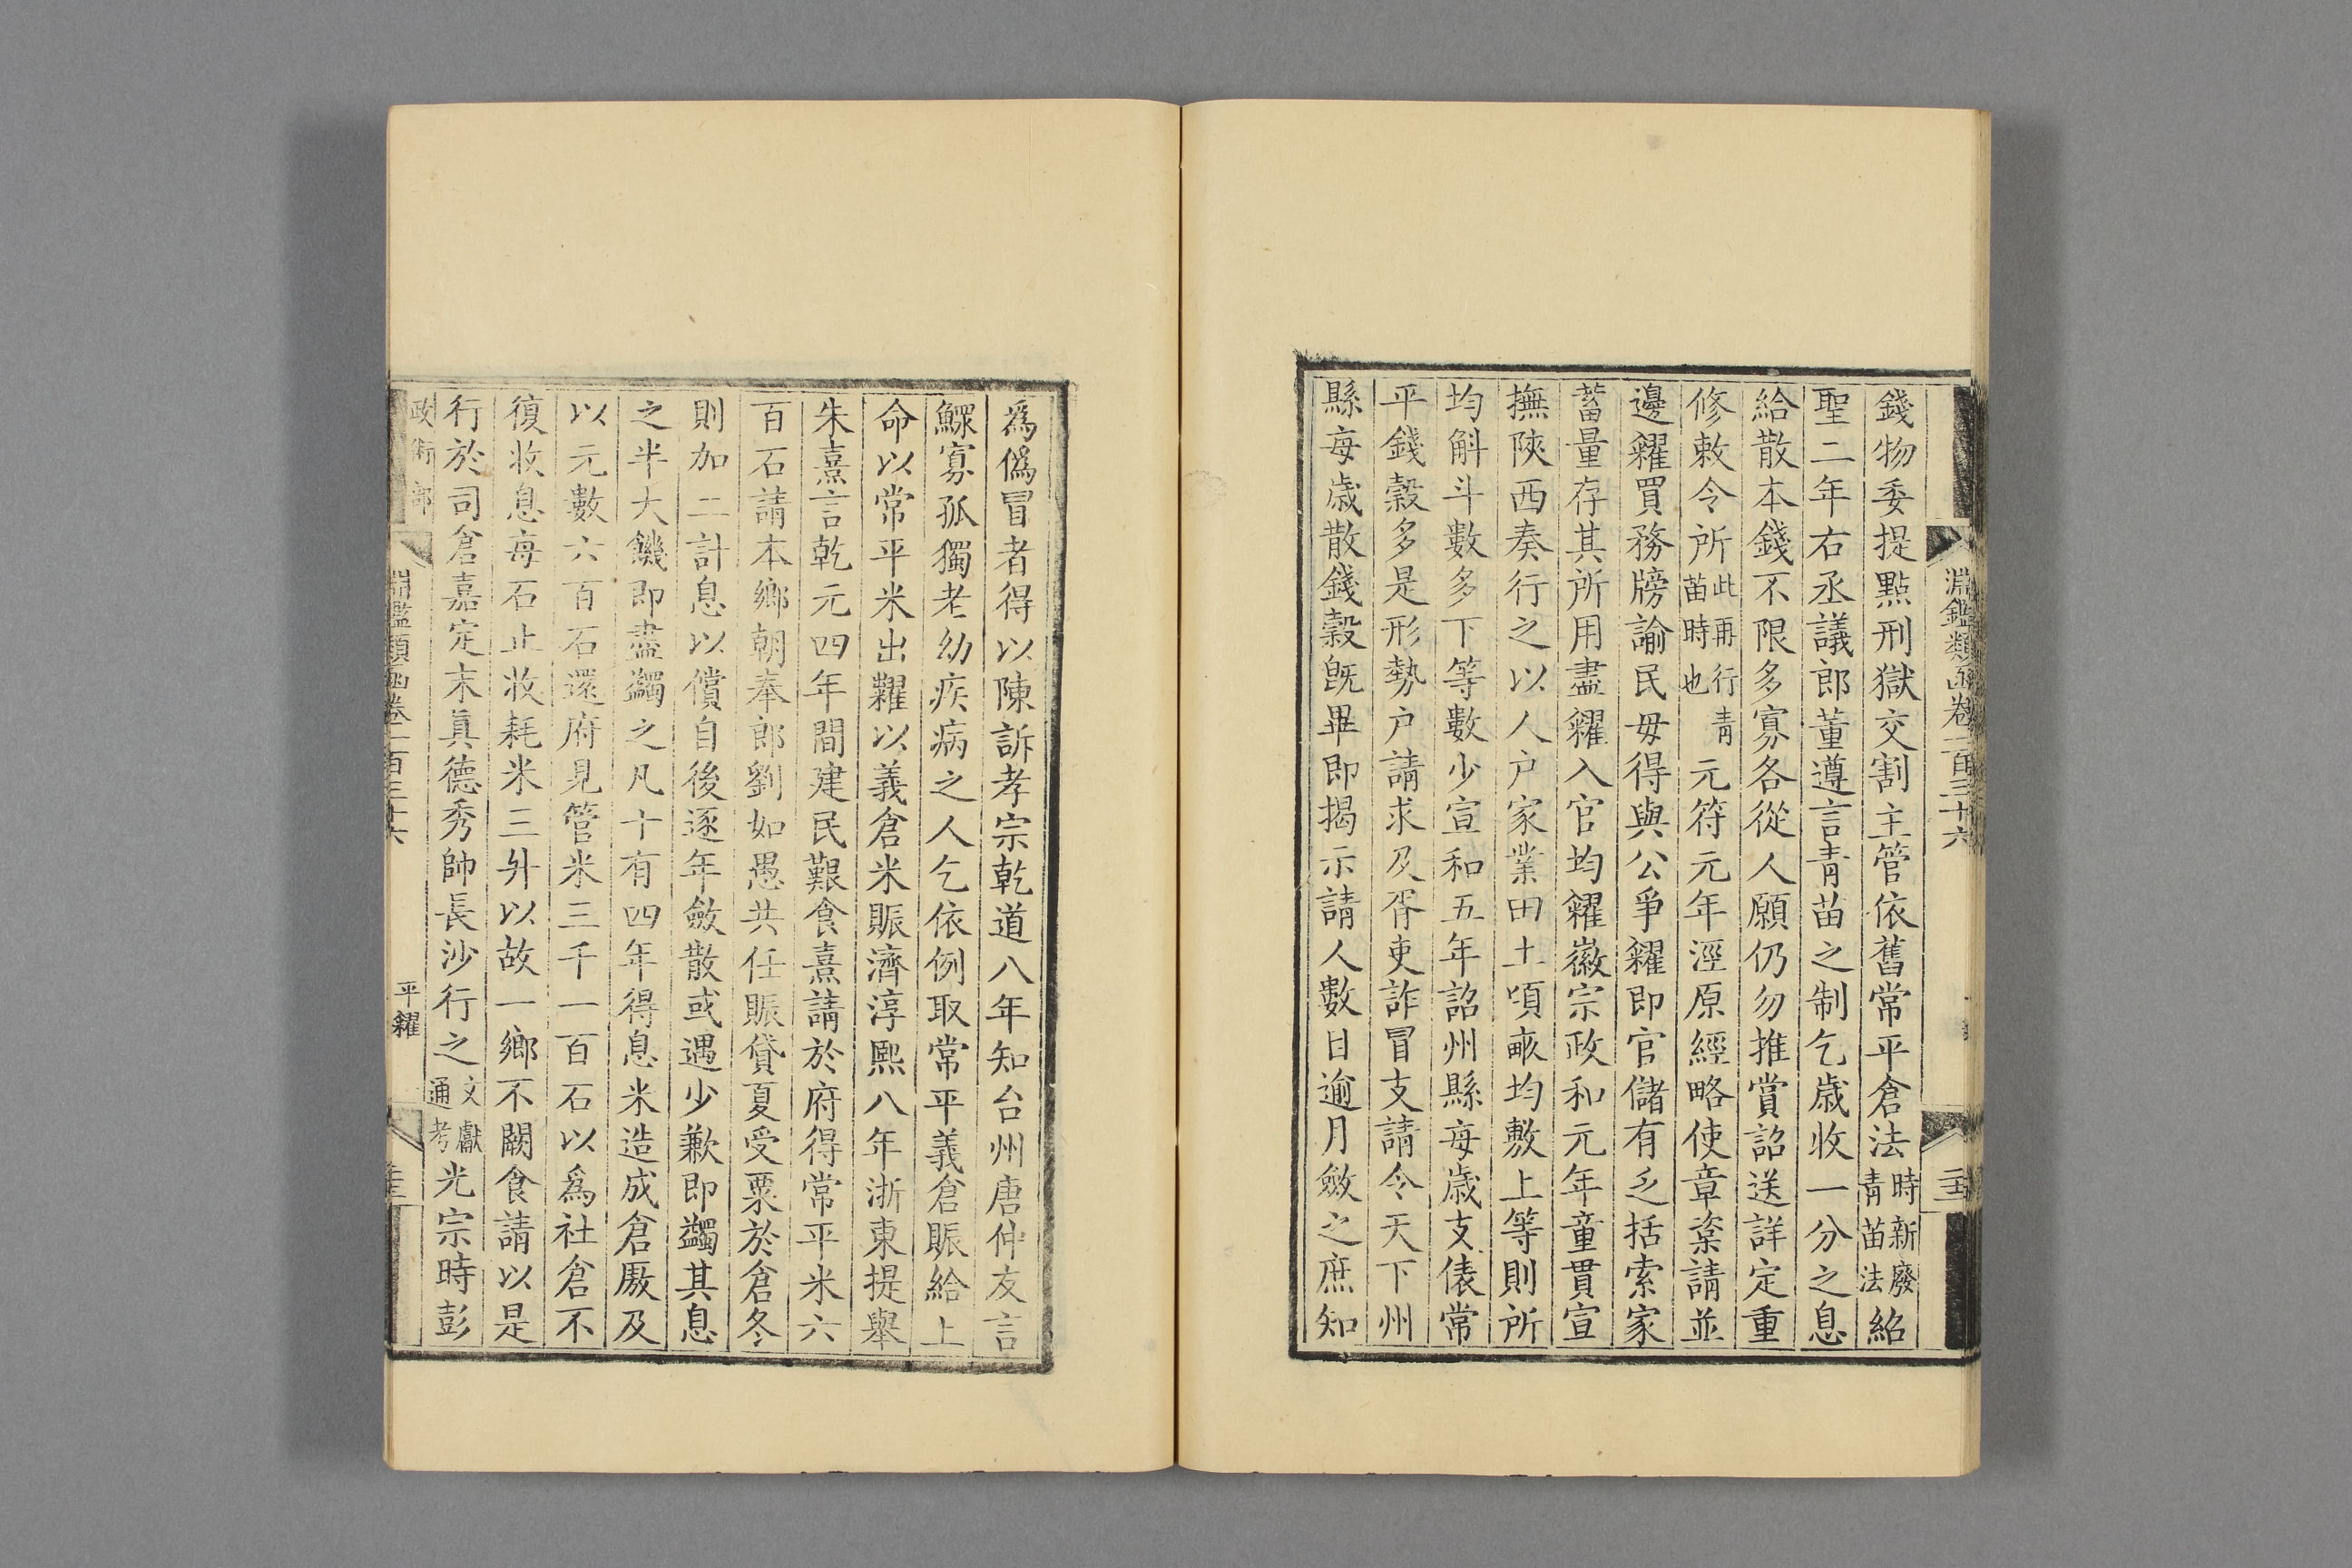 淵鑑類函卷一百三十六
錢物委提點刑獄交割主管依舊常平倉法時新廢青苗法紹
聖二年右丞議郎董遵言青苗之制乞歲收一分之息
給散本錢不限多寡各從人願仍勿推賞詔送詳定重
修敕令所此再行青苗時也元符元年涇原經略使章楶請並
邊糴買務牓諭民毋得與公爭糴即官儲有乏括索家
蓄量存其所用盡糴入官均糴徽宗政和元年童貫宣
撫陝西奏行之以人户家業田土頃畝均敷上等則所
均斛斗數多下等數少宣和五年詔州縣每歲支俵常
平錢穀多是形勢户請求及胥吏詐冒支請令天下州
縣每歲散錢穀旣畢即揭示請人數日逾月斂之庶知
爲僞冒者得以陳訴孝宗乾道八年知台州唐仲友言
鰥寡孤獨老幼疾病之人乞依例取常平義倉賑給上
命以常平米出糶以義倉米賑濟淳熙八年浙東提舉
朱熹言乾元四年間建民艱食熹請於府得常平米六
百石請本鄉朝奉郎劉如愚共任賑貸夏受粟於倉冬
則加二計息以償自後逐年斂散或遇少歉即蠲其息
之半大饑即盡蠲之凡十有四年得息米造成倉厫及
以元數六百石還府見管米三千一百石以爲社倉不
復收息每石止收耗米三升以故一鄉不闕食請以是
行於司倉嘉定末眞德秀帥長沙行之文獻通考光宗時彭
政術部
淵鑑類函卷一百三十六
平糴